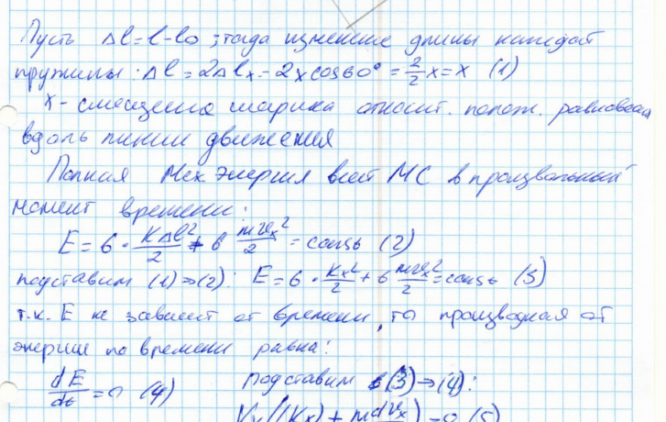 Пусть Δl = l - l₀ ; тогда изменение длины каждой
пружины: Δl = 2Δlₓ = 2x cos60° = 2/2 x = x (1)
x - смещение шарика относит. полож. равновесия
вдоль линии движения
Полная мех энергия всей МС в произвольный
момент времени:
E = 6 · KΔl²/2 + 6 mvₓ²/2 = const (2)
подставим (1) → (2): E = 6 · Kx²/2 + 6 mvₓ²/2 = const (3)
т.к. E не зависит от времени, то производная от
энергии по времени равна:
dE/dt = 0 (4) Подставим (3) → (4):
Vₓ((Kx) + m dvₓ) = 0 (5)